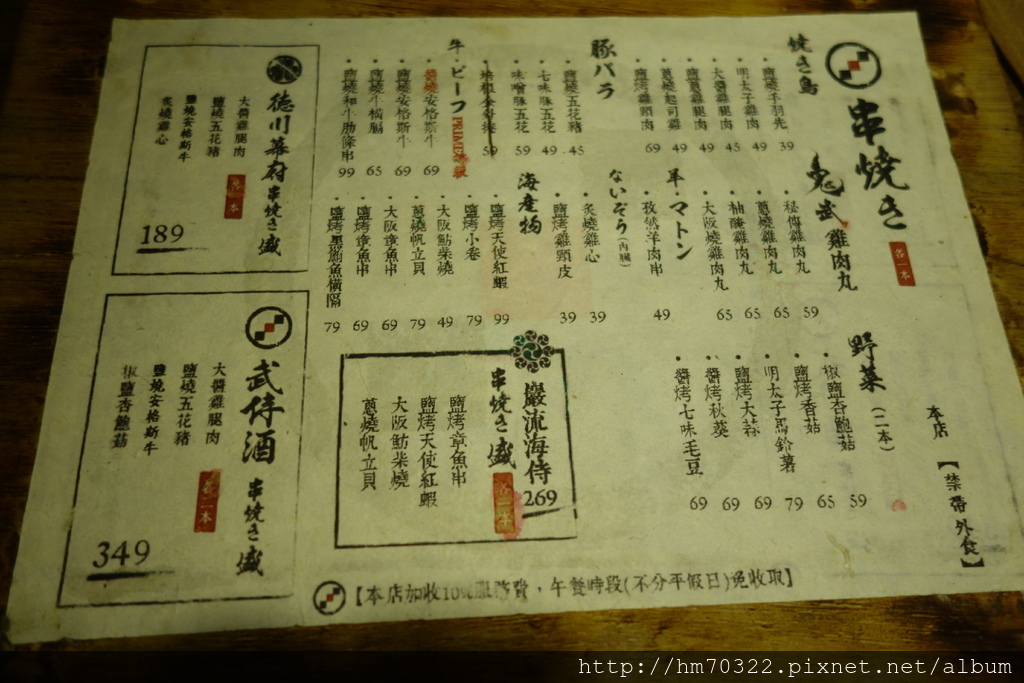 串燒き
各一本
焼き鳥
鹽燒手羽先 39
明太子雞腿肉 49
大醬雞腿肉 45
鹽蔥雞腿肉 49
蔥燒起司雞 49
鹽烤雞頸肉 69
豚バラ
鹽燒五花豬 45
七味豚五花 49
味噌豚五花 59
培根金針捲 59
牛・ビーフ PRIME等級
醬燒安格斯牛 69
鹽燒安格斯牛 69
鹽燒牛橫膈 65
鹽燒和牛肋條串 99
鬼武 雞肉丸
秘傳雞肉丸 59
蔥燒雞肉丸 65
柚醃雞肉丸 65
大阪燒雞肉丸 65
羊・マトン
孜然羊肉串 49
ないぞう(內臟)
炙燒雞心 39
鹽烤雞頸皮 39
海產物
鹽烤天使紅蝦 99
鹽烤小卷 79
大阪魷柴燒 49
蔥燒帆立貝 79
大阪章魚串 69
鹽燒章魚串 69
79
野菜(二本)
椒鹽杏鮑菇 59
鹽烤香菇 65
明太子馬鈴薯 79
鹽烤大蒜 69
醬烤秋葵 69
醬烤七味毛豆 69
本店【禁帶外食】
巖流海侍
串焼き盛
269
鹽烤章魚串
鹽烤天使紅蝦
大阪魷柴燒
蔥燒帆立貝
德川幕府 串燒き盛
各一本
大醬雞腿肉
鹽燒五花豬
鹽燒安格斯牛
炙燒雞心
189
武侍酒 串燒き盛
各二本
大醬雞腿肉
鹽燒五花豬
鹽燒安格斯牛
椒鹽杏鮑菇
349
【本店加收10%服務費,午餐時段(不分平假日)免收取】
http://hm70322.pixnet.net/album